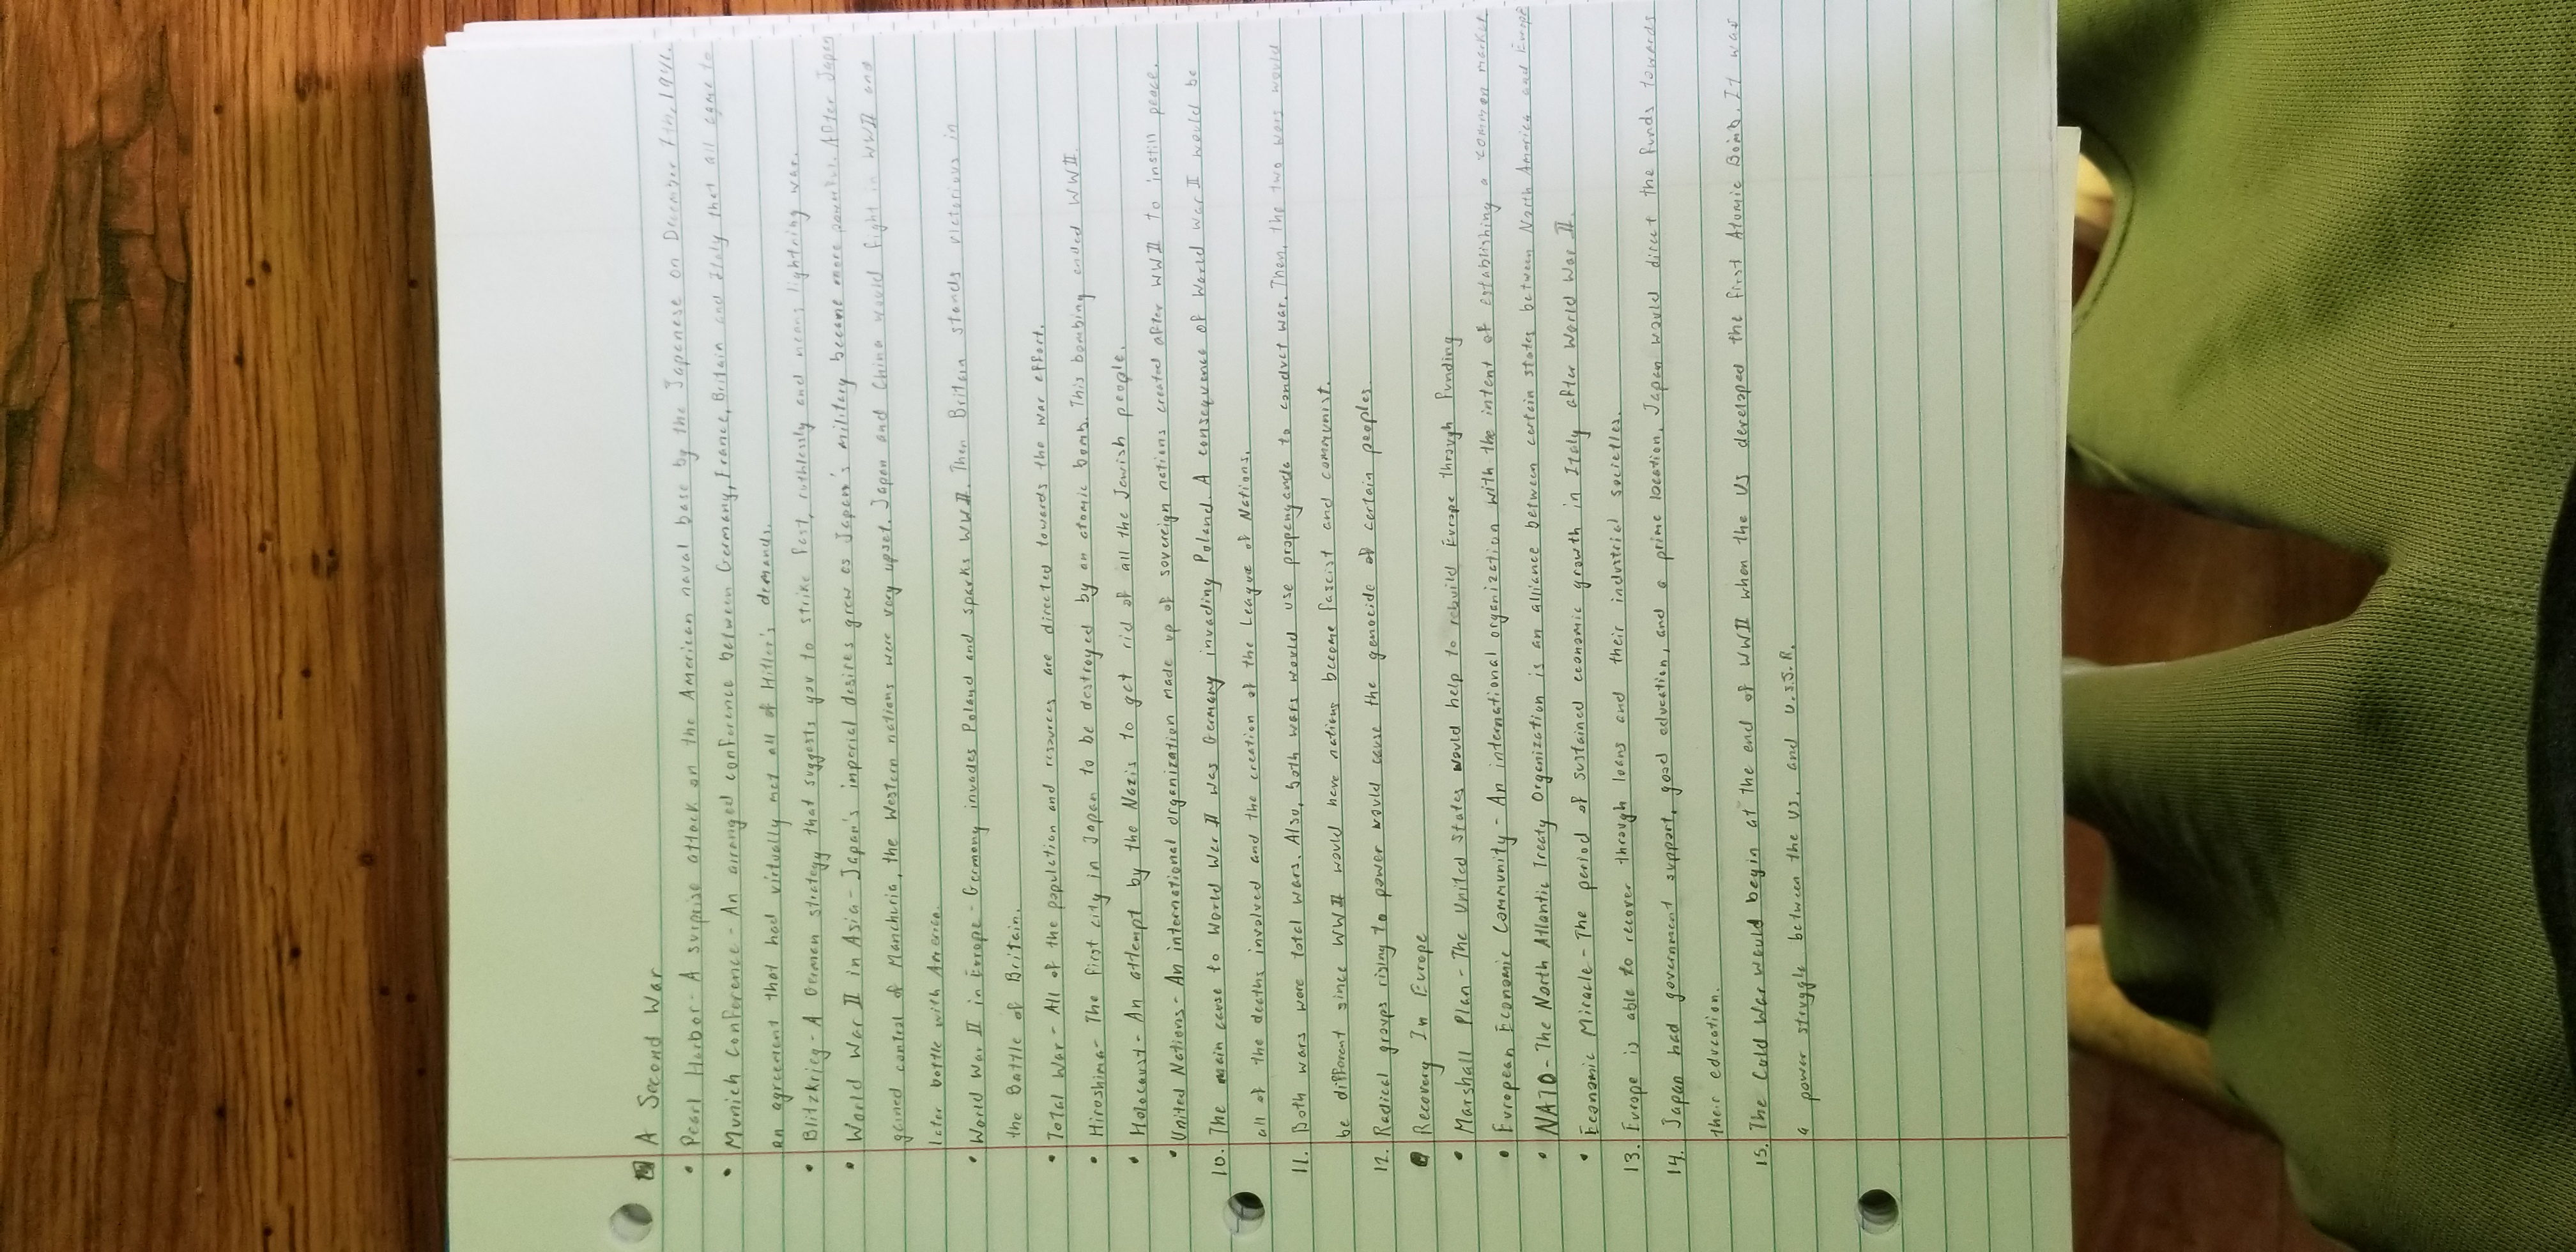 A Second War
• Pearl Harbor - A surprise attack on the American naval base by the Japanese on December 7th, 1941.
• Munich Conference - An arranged conference between Germany, France, Britain and Italy that all came to
an agreement that had virtually met all of Hitler's demands.
• Blitzkrieg - A German strategy that suggests you to strike fast, ruthlessly and means lightning war.
• World War II in Asia - Japan's imperial desires grew as Japan's military became more powerful. After Japan
gained control of Manchuria, the Western nations were very upset. Japan and China would fight in WWII and
later battle with America.
• World War II in Europe - Germany invades Poland and sparks WWII. Then Britain stands victorious in
the Battle of Britain.
• Total War - All of the population and resources are directed towards the war effort.
• Hiroshima - The first city in Japan to be destroyed by an atomic bomb. This bombing ended WWII.
• Holocaust - An attempt by the Nazis to get rid of all the Jewish people.
• United Nations - An international organization made up of sovereign nations created after WWII to instill peace.
10. The main cause to World War II was Germany invading Poland. A consequence of World War II would be
all of the deaths involved and the creation of the League of Nations.
11. Both wars were total wars. Also, both wars would use propenganda to conduct war. Then, the two wars would
be different since WWII would have nations become fascist and communist.
12. Radical groups rising to power would cause the genocide of certain peoples.
Recovery In Europe
• Marshall Plan - The United States would help to rebuild Europe through funding
• European Economic Community - An international organization with the intent of establishing a common market
• NATO - The North Atlantic Treaty Organization is an alliance between certain states between North America and Europe
• Economic Miracle - The period of sustained economic growth in Italy after World War II.
13. Europe is able to recover through loans and their industrial societies.
14. Japan had government support, good education, and a prime location. Japan would direct the funds towards
their education.
15. The Cold War would begin at the end of WWII when the US developed the first Atomic Bomb. It was
a power struggle between the US. and U.S.S.R.